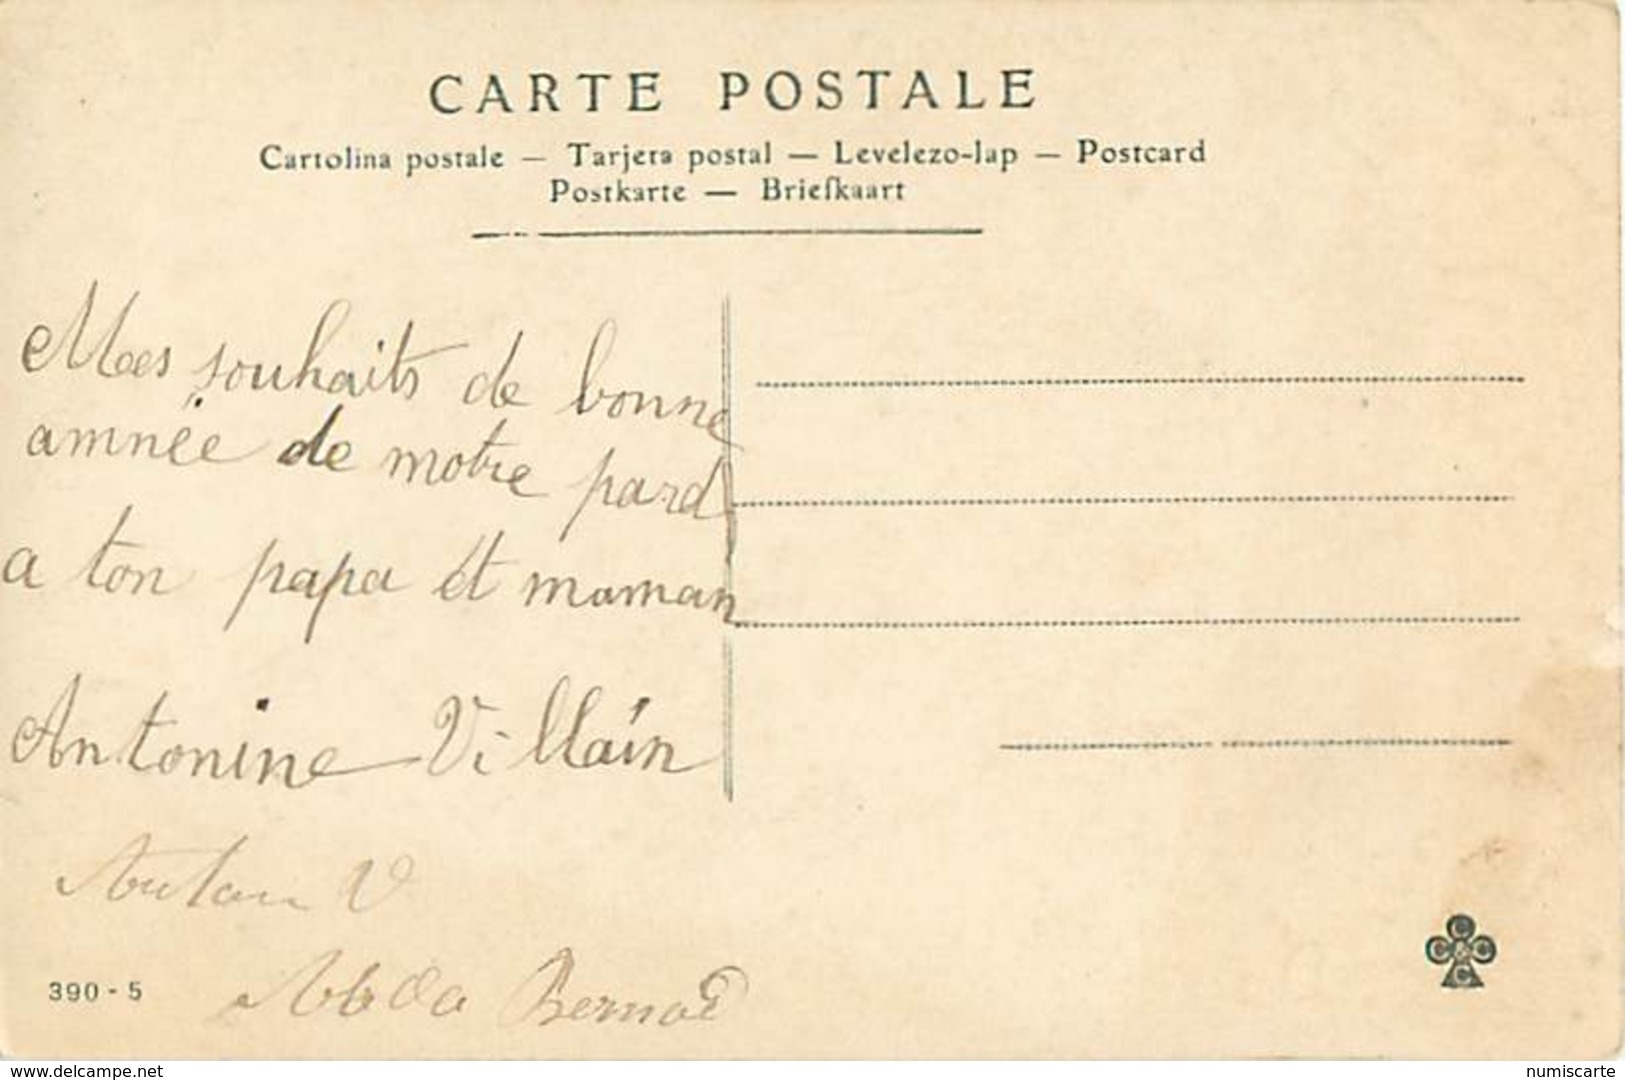 CARTE POSTALE
Cartolina postale — Tarjeta postal — Levelezo-lap — Postcard
Postkarte — Briefkaart
Mes souhaits de bonne
amnée de motre pard
a ton papa et maman
Antonine Villain
V
390 - 5
C C & C C
www.delcampe.net
numiscarte